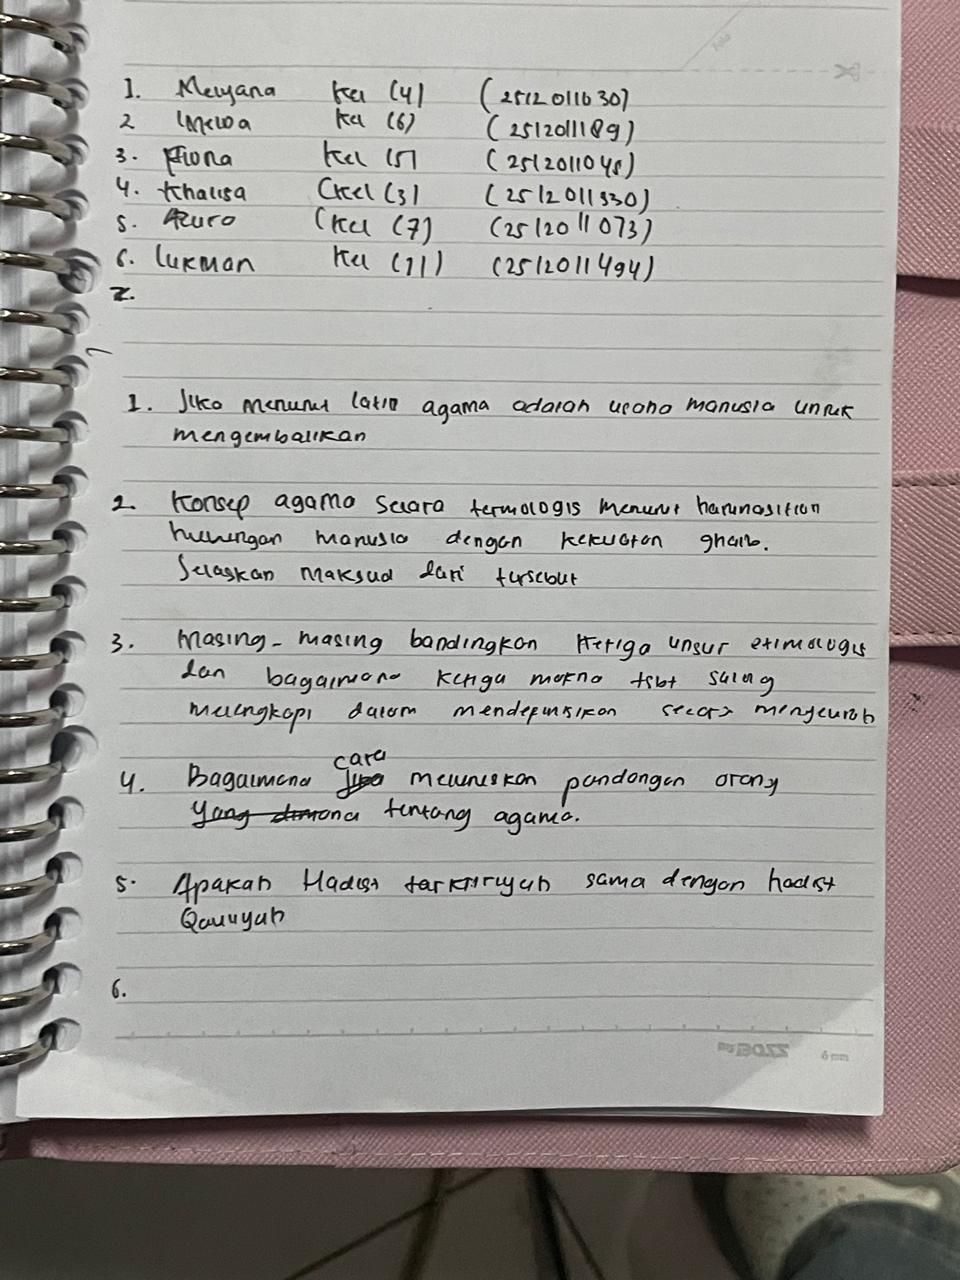 1. Meuyana Kel (4) (2512011630)
2 Kel (6) (2512011189)
3. Fiona Kel (5) (2512011045)
4. Khalisa (Kel (3) (2512011330)
5. Azuro (Kel (7) (2512011073)
6. Lukman Kel (11) (2512011494)
7.
1. Jika menurut latin agama adalah usaha manusia untuk
mengembalikan
2. Konsep agama secara termologis menurut harunasition
hubungan manusia dengan kekuatan ghaib.
Jelaskan maksud dari tersebut
3. Masing-masing bandingkan ketiga unsur etimologis
dan bagaimana ketiga makna tsbt saling
melengkapi dalam mendefinisikan secara menyeuruh
4. Bagaimana cara meluruskan pandangan orang
tentang agama.
5. Apakah Hadist tarkririyah sama dengan hadist
Qauliyah
6.
BOSS 6mm